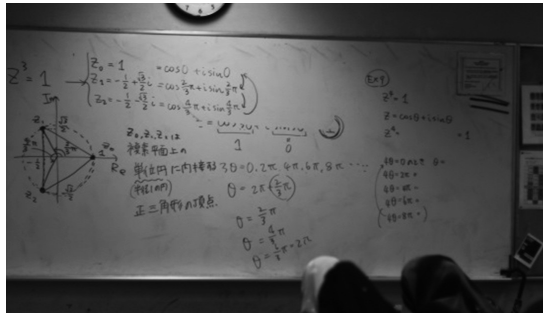 Z³ = 1
Z₀ = 1 = cos0 + i sin0
Z₁ = -1/2 + √3/2 i = cos 2/3 π + i sin 2/3 π
Z₂ = -1/2 - √3/2 i = cos 4/3 π + i sin 4/3 π
Im
Z₁
Z₂
Re
Z₀, Z₁, Z₂は
複素平面上の
単位円に内接する
(半径1の円)
正三角形の頂点.
1 0
3θ = 0, 2π, 4π, 6π, 8π ...
θ = 2/3 π
θ = 4/3 π
Z⁴ = 1
Z = cosθ + i sinθ
= 1
4θ = 2π
4θ = 4π
4θ = 6π
4θ = 8π